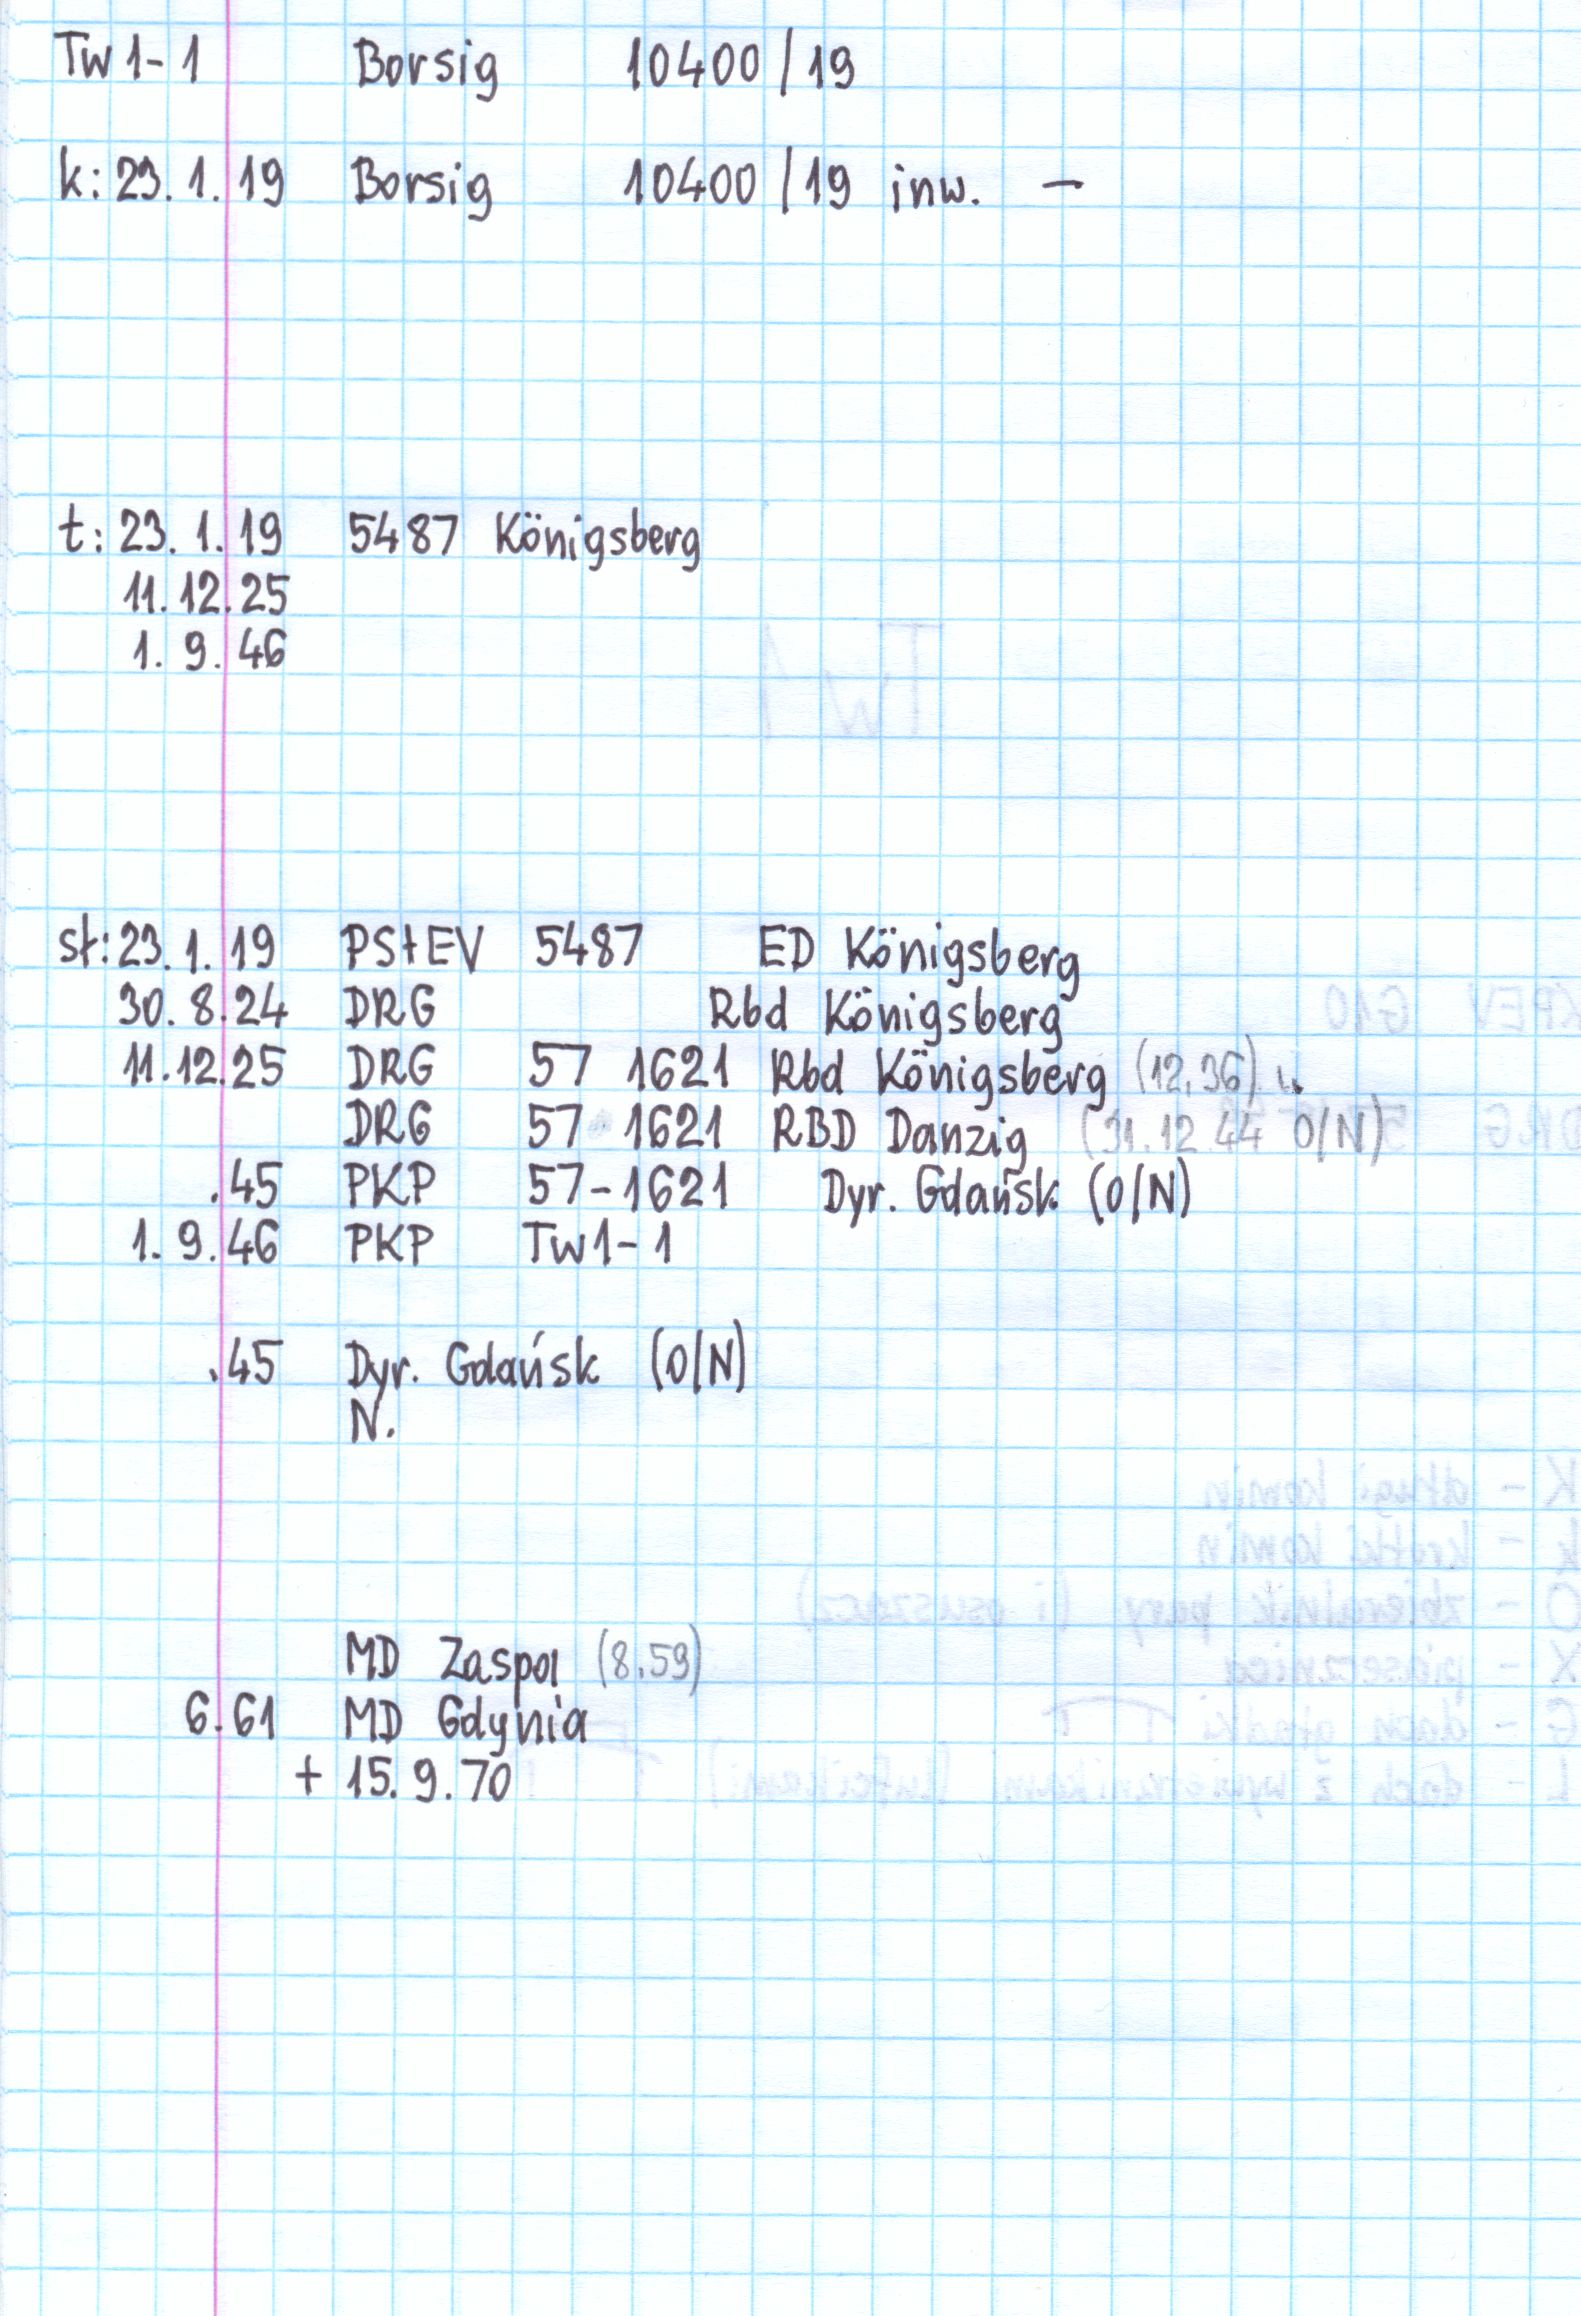 Tw1-1 Borsig 10400/19
k: 23.1.19 Borsig 10400/19 inw. –
t: 23.1.19 5487 Königsberg
11.12.25
1.9.46
st: 23.1.19 PStEV 5487 ED Königsberg
30.8.24 DRG Rbd Königsberg
11.12.25 DRG 57 1621 Rbd Königsberg (12.36)
DRG 57 1621 RBD Danzig (31.12.44 O/N)
.45 PKP 57-1621 Dyr. Gdańsk (O/N)
1.9.46 PKP Tw1-1
.45 Dyr. Gdańsk (O/N)
N.
MD Zaspa (8.59)
6.61 MD Gdynia
+ 15.9.70